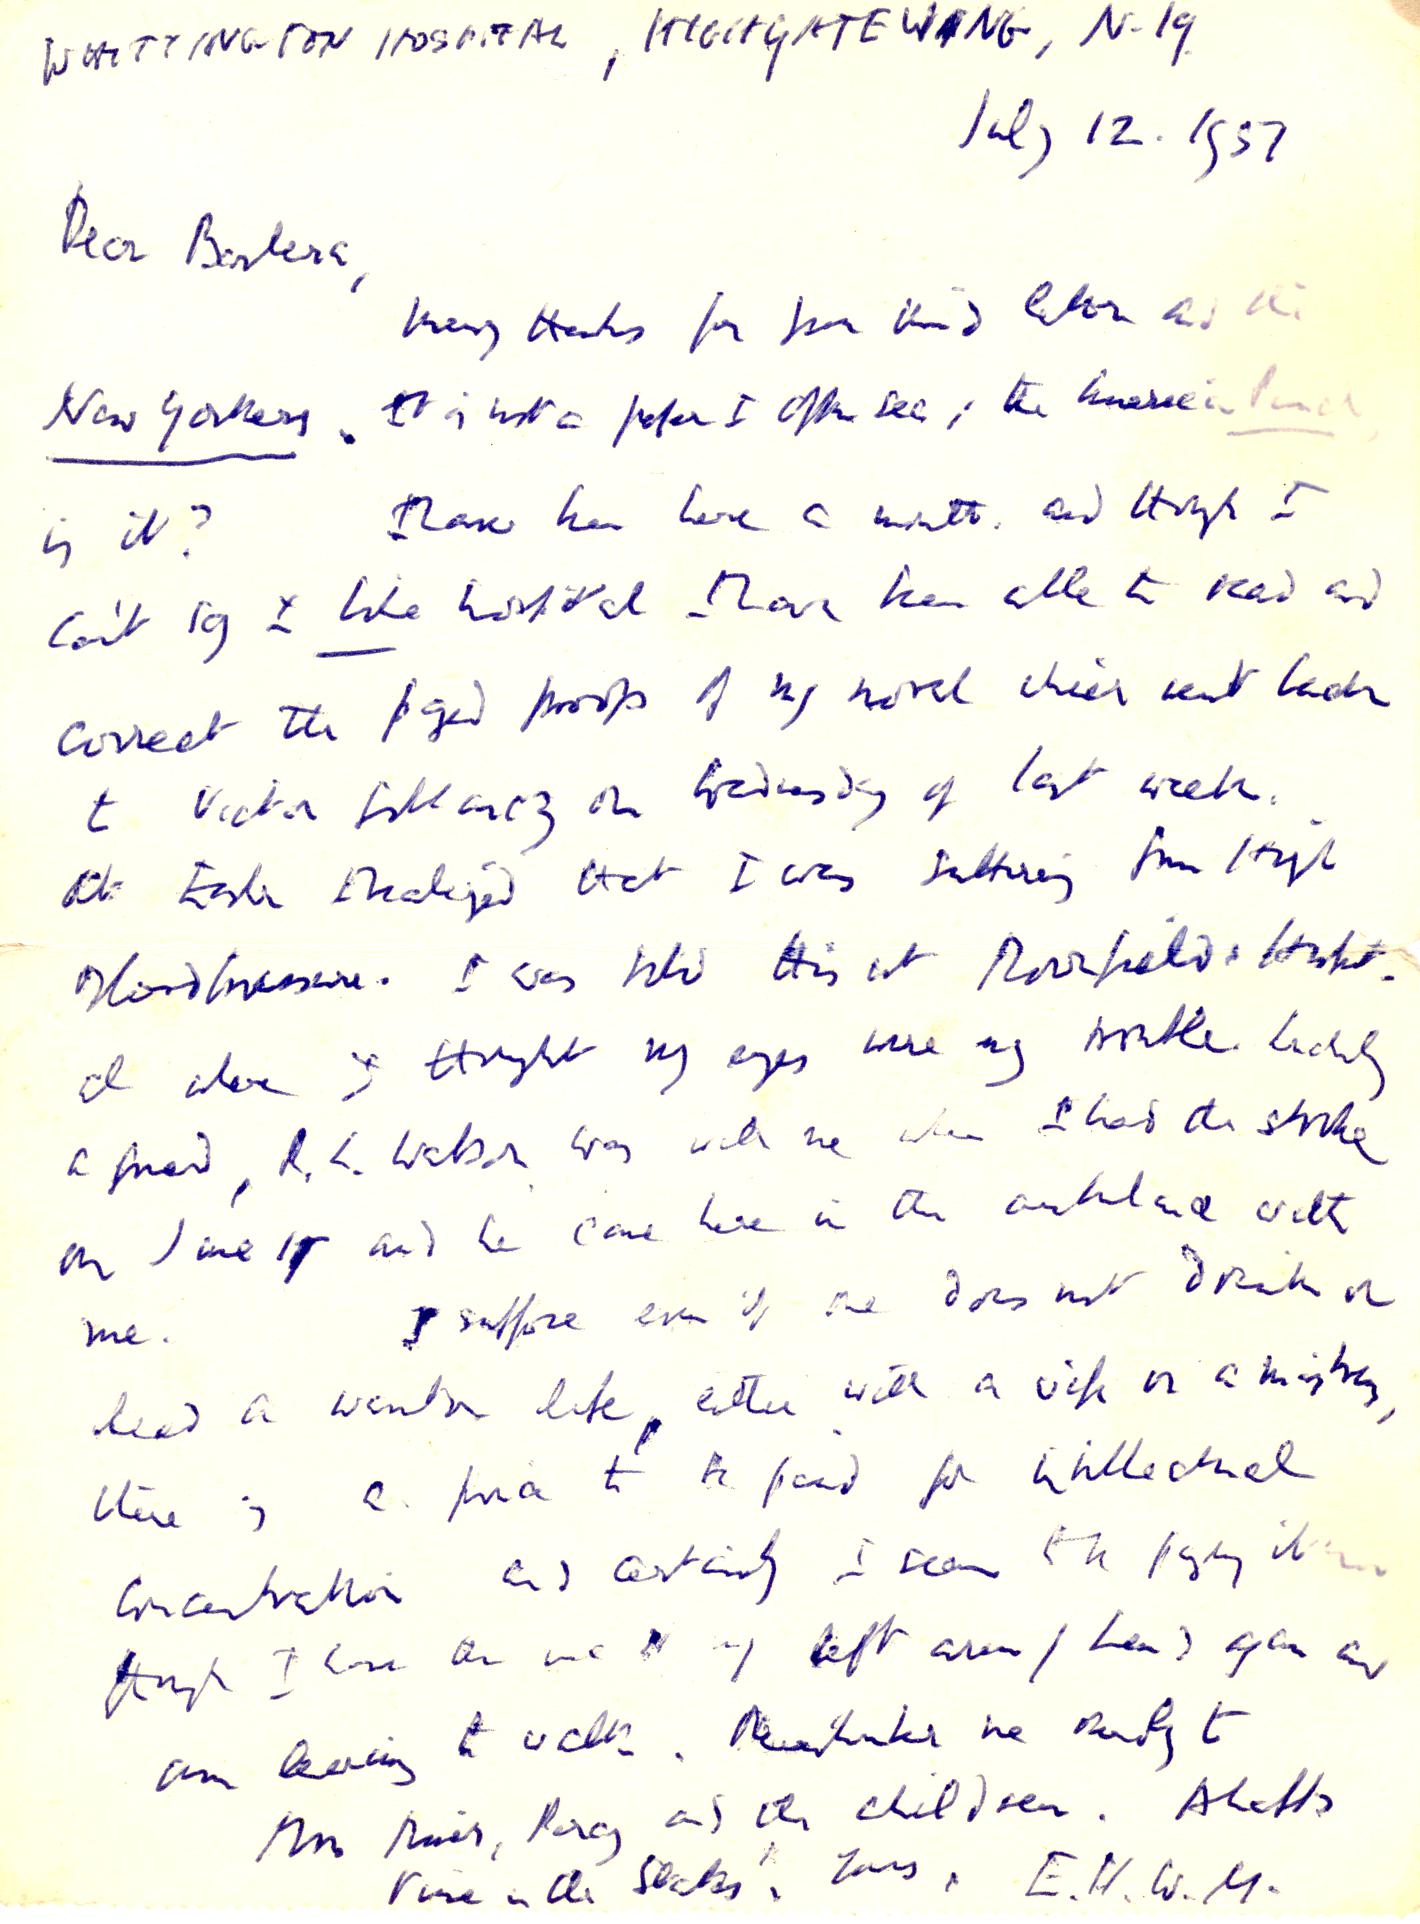 WHITTINGTON HOSPITAL, HIGHGATE WING, N.19
July 12. 1957
Dear Barbara,
Many thanks for your kind letter and the
New Yorkers. It is not a paper I often see; the American Punch,
is it? I have been here a month. and though I
can't say I like hospital I have been able to read and
correct the paged proofs of my novel which went back
to Victor Gollancz on Wednesday of last week.
At Easter I realized that I was suffering from High
Bloodpressure. I was told this at Moorfields Hospit-
al when I thought my eyes were my trouble. Luckily
a friend, R. L. Watson was with me when I had the stroke
on June 17 and he came here in the ambulance with
me. I suppose even if one does not drink or
lead a wanton life, either with a wife or a mistress,
there is a price to be paid for intellectual
concentration and certainly I seem to be paying it now
though I have the use of my left arm / hand again and
am learning to walk. Remember me kindly to
Mrs Muir, Percy and the children. A hefty
time in the States. Yours, E.H.W.M.